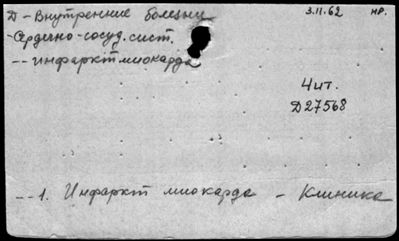 Д - Внутренние болезни 3.II.62 нр.
-Сердечно-сосуд. сист.
-- инфаркт миокарда
Чит.
Д27568
-- 1. Инфаркт миокарда - Клиника